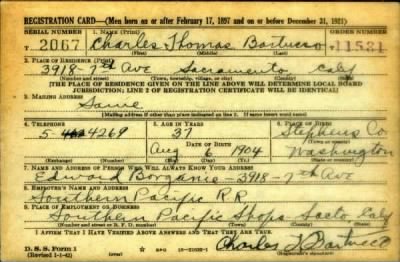 REGISTRATION CARD—(Men born on or after February 17, 1897 and on or before December 31, 1921)
SERIAL NUMBER 1. NAME (Print) ORDER NUMBER
T 2067 Charles Thomas 11581
(First) (Middle) (Last)
2. PLACE OF RESIDENCE (Print)
3918-7th Ave Sacramento Calif
(Number and street) (Town, township, village, or city) (County) (State)
[THE PLACE OF RESIDENCE GIVEN ON THE LINE ABOVE WILL DETERMINE LOCAL BOARD
JURISDICTION; LINE 2 OF REGISTRATION CERTIFICATE WILL BE IDENTICAL]
3. MAILING ADDRESS
Same
[Mailing address if other than place indicated on line 2. If same insert word same]
4. TELEPHONE 5. AGE IN YEARS 6. PLACE OF BIRTH
5 4269 37 Stephens Co
DATE OF BIRTH
Aug 6 1904 Washington
(Exchange) (Number) (Mo.) (Day) (Yr.) (State or country)
7. NAME AND ADDRESS OF PERSON WHO WILL ALWAYS KNOW YOUR ADDRESS
Edward 3918-7th Ave
8. EMPLOYER'S NAME AND ADDRESS
Southern Pacific R.R.
9. PLACE OF EMPLOYMENT OR BUSINESS
Southern Pacific Shops Sacto, Calif
(Number and street or R. F. D. number) (Town) (County) (State)
I AFFIRM THAT I HAVE VERIFIED ABOVE ANSWERS AND THAT THEY ARE TRUE.
D. S. S. Form 1 Charles T
(Revised 1-1-42) (Registrant's signature)